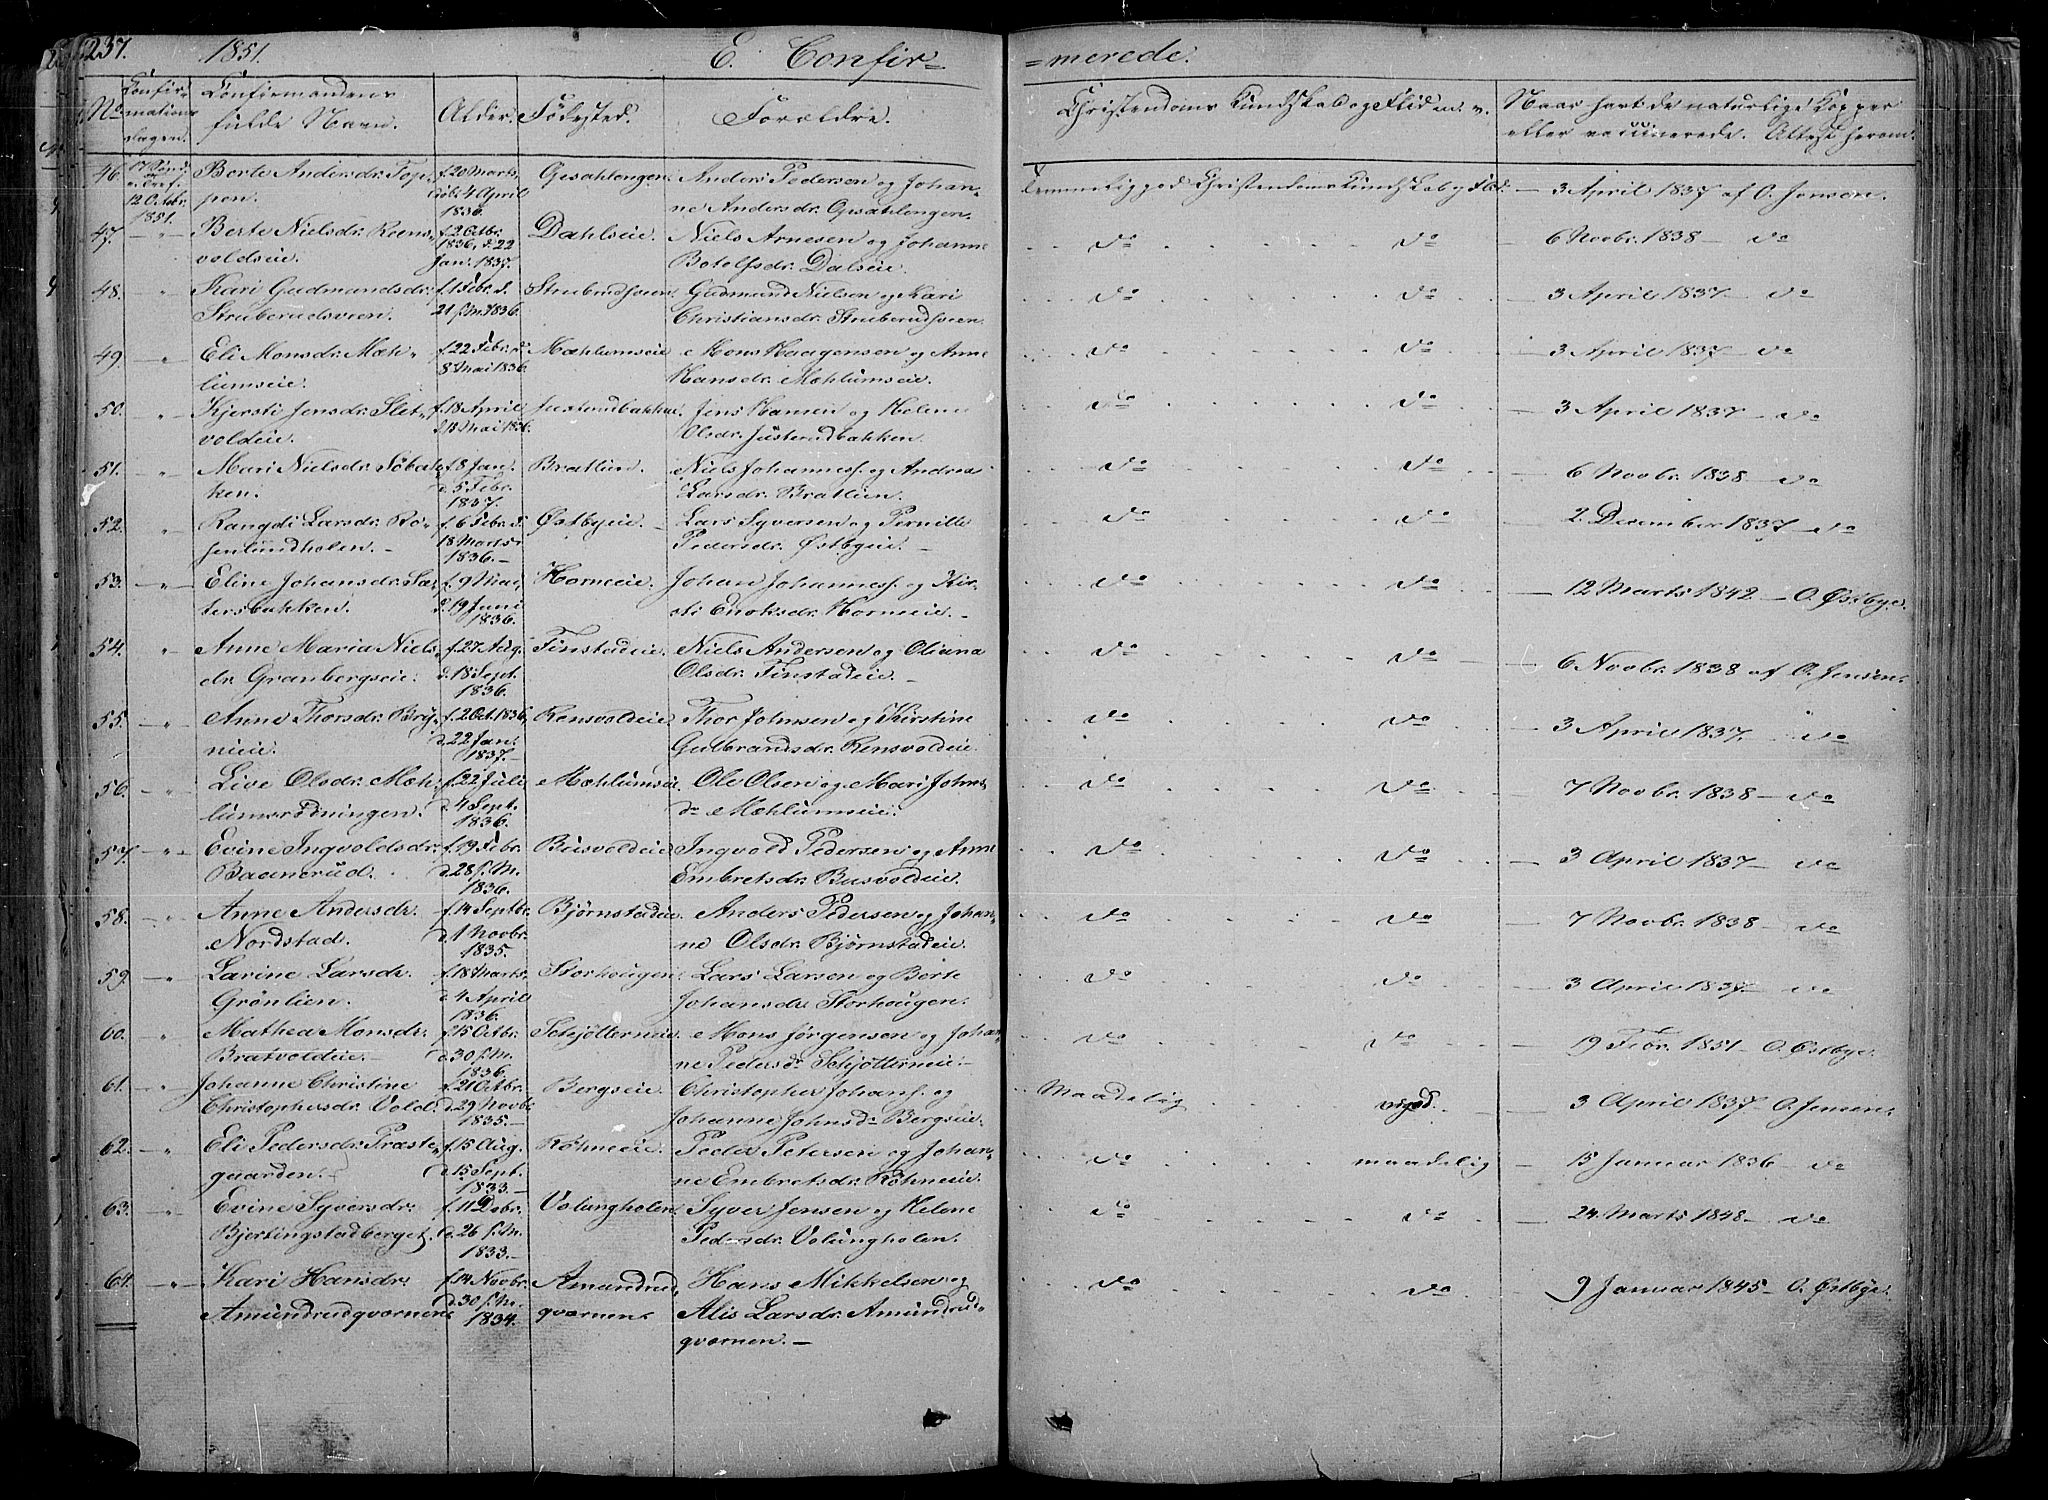 237. 1851. E. Confir= =merede.
No. Confir= mations dagen. Confirmandens fulde Navn. Alder. Födested. Forældre. Christendoms Kundskab og Flid m. v. Naar havt de naturlige Kopper eller vaccinerede. Attest herom.
46. 17 Sönd. e. Tref. 12 Octbr. 1851. Berte Andersdr. Top= pen. f. 20 Marts, döb. 4 April 1836. Opsahlengen. Anders Pedersen og Johan= ne Andersdr. Opsahlengen. Temmelig god Christendoms Kundskab og Flid. — 3 April 1837 af O. Jensen.
47. — " Berte Nielsdr. Reens= voldseie. f. 2 Octbr. 1836, d. 22 Jan. 1837. Dahlseie. Niels Arnesen og Johanne Botolfsdr. Dalseie. do do 6 Novbr. 1838 — do
48. " Kari Gudmundsdr. Struberudsveen. f. 1 Febr. d. 21 s. M. 1836. Struberudsveen. Gudmund Nielsen og Kari Christiansdr. Struberudsveen. do do — 3 April 1837 — do
49. — " Eli Monsdr. Mæh= lumseie. f. 22 Febr. d. 8 Mai 1836. Mæhlumseie. Mons Haagensen og Anne Hansdr. Mæhlumseie. do do — 3 April 1837 — do
50. — " Kjersti Jensdr. Slet= voldeie. f. 18 April d. 18 Mai 1836. Justerudbakken. Jens Hansen og Helene Olsdr. Justerudbakken. do do — 3 April 1837 — do
51. — " Mari Nielsdr. Söbak= ken. f. 8 Jan. d. 5 Febr. 1837. Bratlien. Niels Johanness. og Andrea Larsdr. Bratlien. do do — 6 Novbr. 1838 — do
52. " Rangdi Larsdr. Ro= senlundholen. — f. 6 Febr. d. 18 Marts 1836. — Østbyeie. — Lars Syversen og Pernille Pedersdr. Østbyeie. — do do — 2. December 1837 — do
53. — " Eline Johansdr. Sæ= tersbakken. f. 9 Mai, d. 19 Juni 1836. Horneeie. Johan Johanness. og Kir= sti Enoksdr. Horneie. — do do — 12 Marts 1842 — O. Østbye.
54. " Anne Maria Niels= dr. Granbergseie. f. 27 Aug. d. 18 Sept. 1836. Finstadeie. Niels Andersen og Oliana Olsdr. Finstadeie. — do do — 6 Novbr. 1838 af O. Jensen.
55. — " Anne Thorsdr. Bry= nieie. f. 2 Oct. 1836, d. 22 Jan. 1837. — Rensvoldeie. Thor Johnsen og Kirstine Gulbrandsdr. Rensvoldeie. do do — 3 April 1837. — do
56. — " Live Olsdr. Mæh= lumsrödningen. f. 22 Juli d. 4 Sept. 1836. Mæhlumseie. Ole Olsen og Mari Johns= dr. Mæhlumseie. do do — 7 Novbr. 1838 — do
57. — " Evine Ingvoldsdr. Baanerud. f. 19 Febr. d. 28 s. M. 1836. Busvoldeie. Ingvold Pedersen og Anne Embretsdr. Busvoldeie. do do — 3 April 1837 — do
58. — " Anne Andersdr. Nordstad. f. 14 Septbr. d. 1 Novbr. 1835. Bjørnstadeie. Anders Pedersen og Johan= ne Olsdr. Bjørnstadeie. do do — 7 Novbr. 1838 — do
59. — " Larine Larsdr. Grönlien. f. 18 Marts, d. 4 April 1836. Storhougen. Lars Larsen og Berte Johansdr. Storhougen. do do — 3 April 1837. — do
60. — " Mathea Monsdr. Bratvoldeie. — f. 15 Octbr. d. 30 s. M. 1836. Schjötterneie. Mons Jørgensen og Johan= ne Pedersdr. Schjötterneie. — do do — 19 Febr. 1851 — O. Østbye.
61. — " Johanne Christine Christophersdr. Vold. f. 21 Octbr. d. 29 Novbr. 1835. — Bergseie. Christopher Johans. og Johanne Johnsdr. Bergseie. Maadelig god. — 3 April 1837 — O. Jensen.
62. — " Eli Pedersdr. Præste= gaarden. — f. 15 Aug. d. 15 Sept. 1833. — Röhneeie. Peder Petersen og Johan= ne Embretsdr. Röhneeie. do maadelig — 15 Januar 1836 — do
63. — " Evine Syversdr. Bjertingstadberget. f. 11 Dcbr. d. 26 s. M. 1833. — Volungholen. Syver Jensen og Helene Pedersdr. Volungholen. do do — 24. Marts 1848 — do
64. — " Kari Hansdr. Amundrudqværnene f. 14 Novbr. d. 30 s. M. 1834. Amundrud qværnene Hans Mikkelsen og Alis Larsdr. Amundrud= qværnen. — do do — 9 Januar 1845 — O. Østbye.